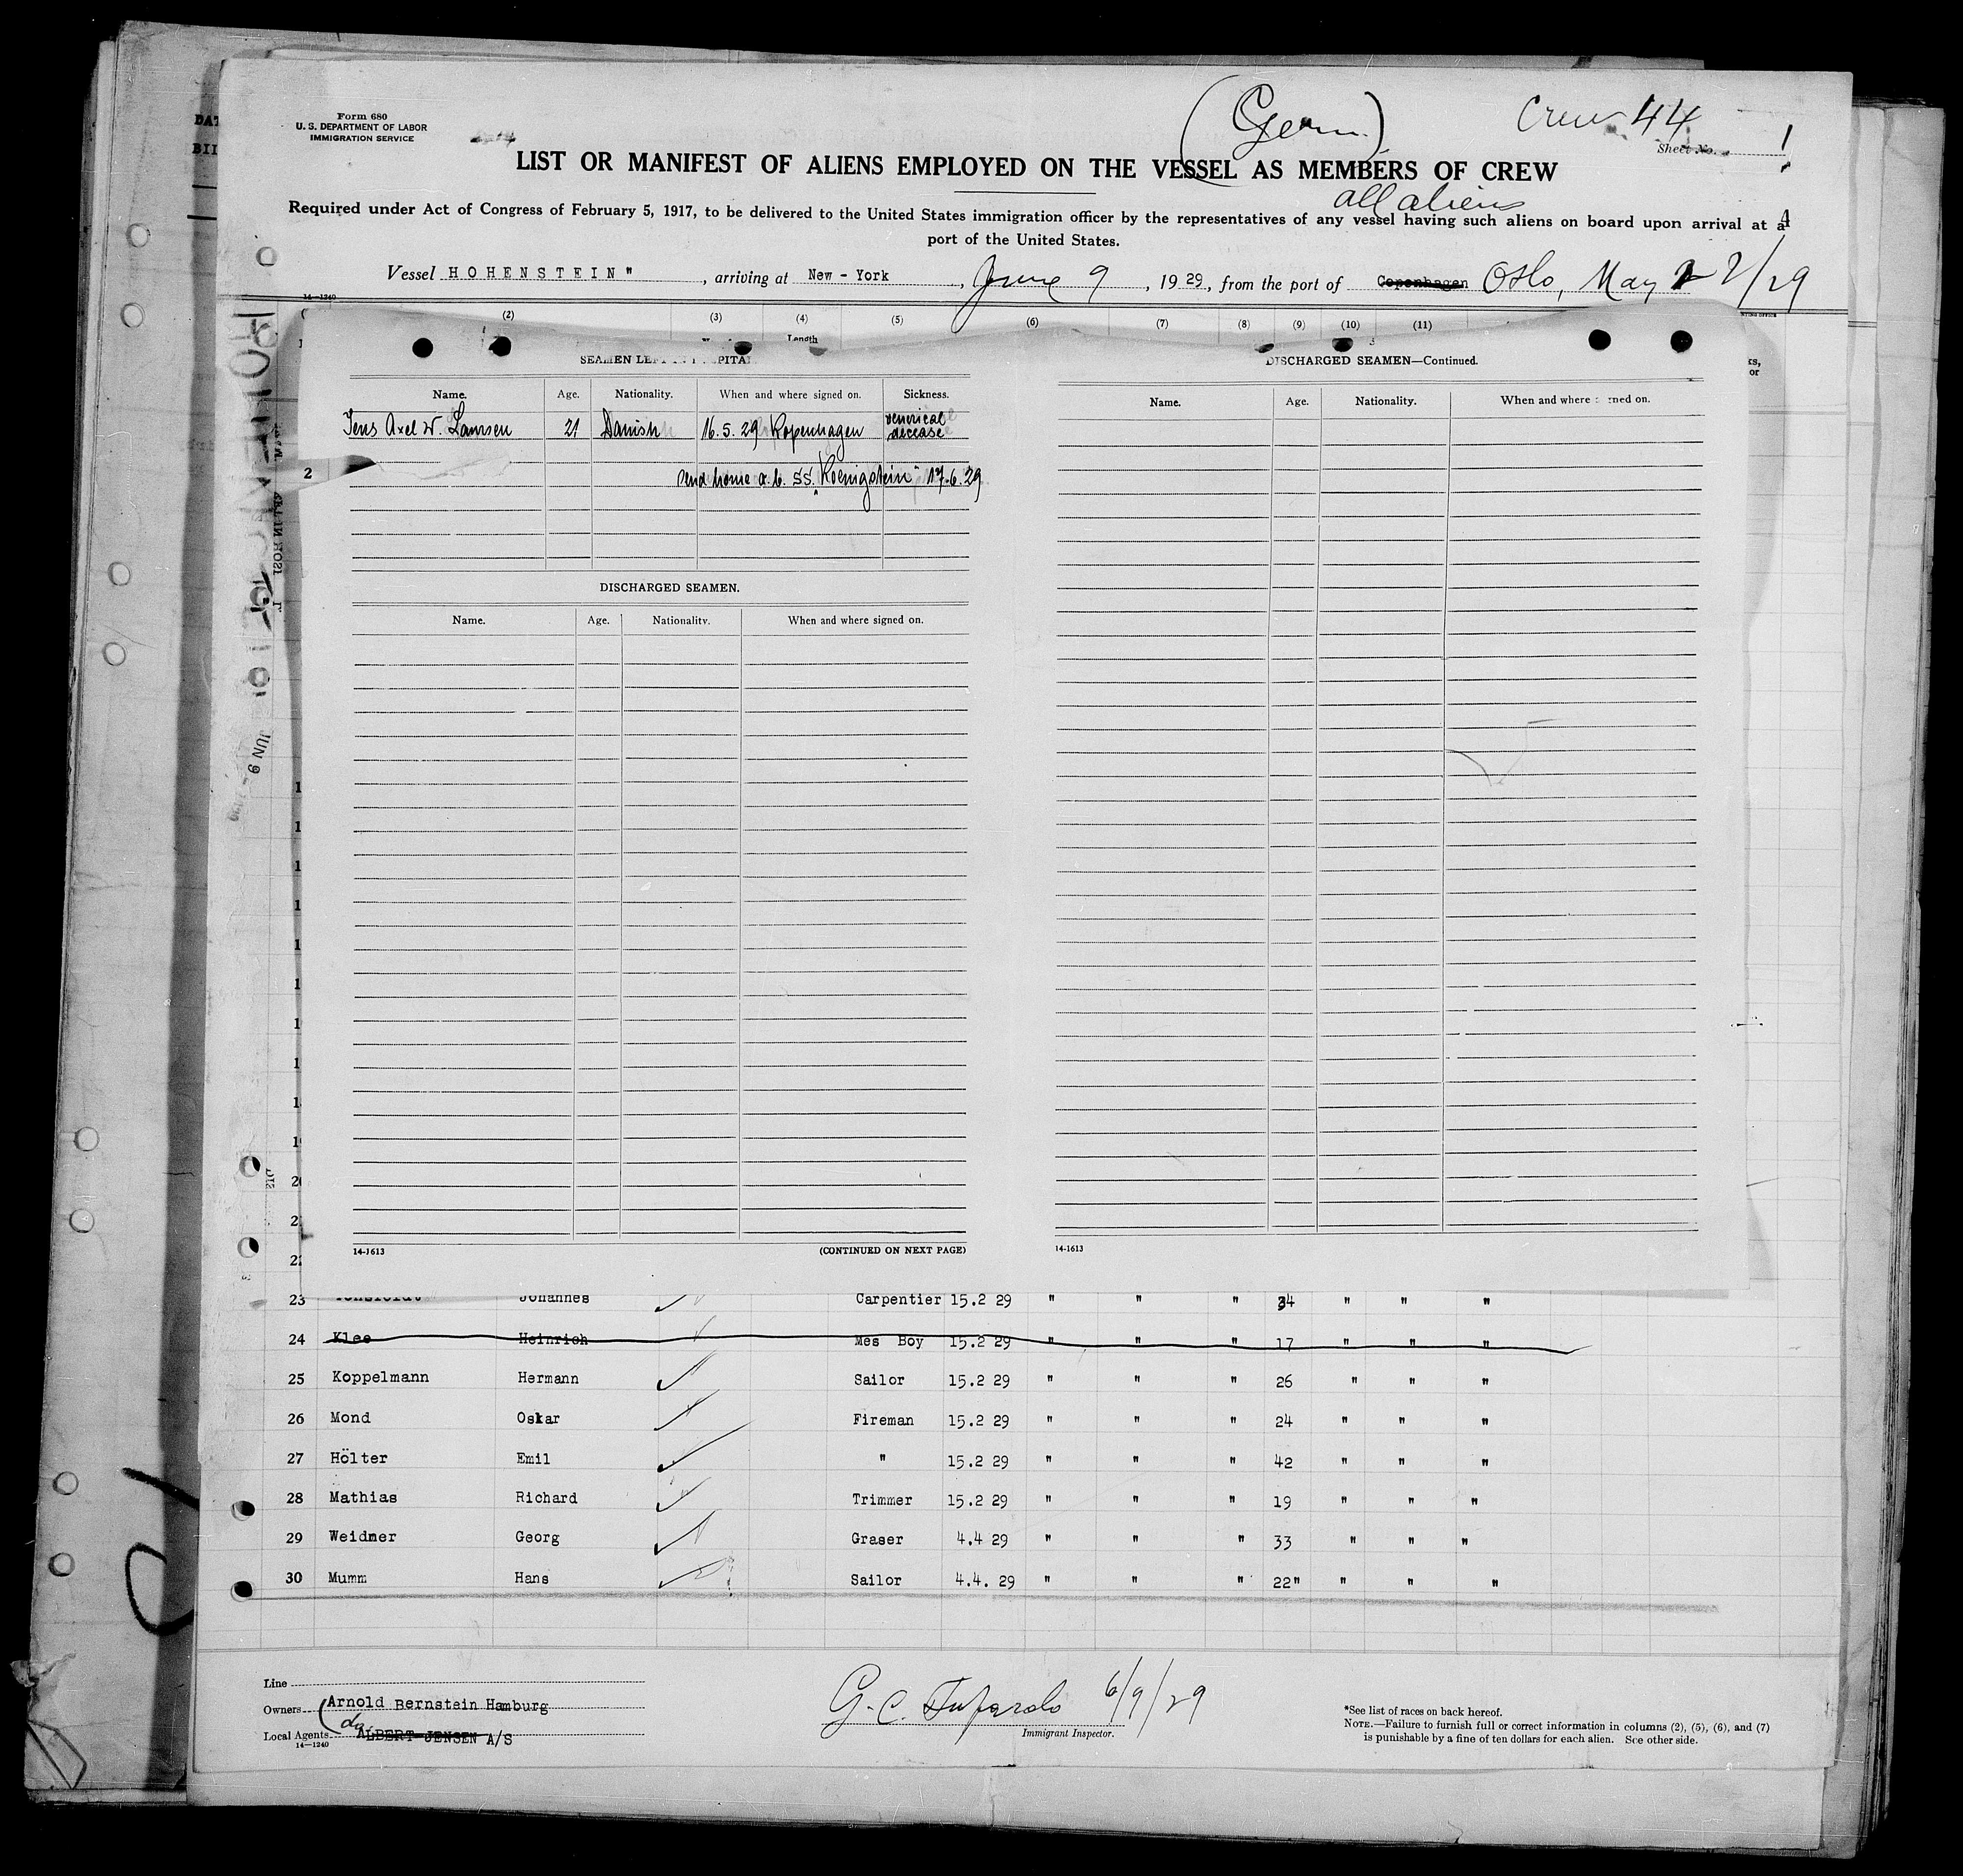 Form 680
U. S. DEPARTMENT OF LABOR
IMMIGRATION SERVICE
(Germ.)
Crew 44
Sheet No. 1
LIST OR MANIFEST OF ALIENS EMPLOYED ON THE VESSEL AS MEMBERS OF CREW
all aliens
Required under Act of Congress of February 5, 1917, to be delivered to the United States immigration officer by the representatives of any vessel having such aliens on board upon arrival at a
port of the United States.
Vessel HOHENSTEIN" , arriving at New - York , June 9 , 1929, from the port of Copenhagen Oslo, May 22/29
14—1240
(2) (3) (4) (5) (6) (7) (8) (9) (10) (11)
Length
SEAMEN LEFT IN HOSPITAL
Name. Age. Nationality. When and where signed on. Sickness.
Jens Axel W. Laursen 21 Danish 16.5.29 Kopenhagen venerical decease
2
send home a.b. SS. „Koenigstein" 17.6.29
DISCHARGED SEAMEN.
Name. Age. Nationality. When and where signed on.
14-1613 (CONTINUED ON NEXT PAGE)
DISCHARGED SEAMEN—Continued.
Name. Age. Nationality. When and where signed on.
14-1613
JUN 9
20
22
23 Johannes Carpentier 15.2 29 " " " 34 " " "
24 Klee Heinrich Mes Boy 15.2 29 " " " 17 " " "
25 Koppelmann Hermann Sailor 15.2 29 " " " 26 " " "
26 Mond Oskar Fireman 15.2 29 " " " 24 " " "
27 Hölter Emil " 15.2 29 " " " 42 " " "
28 Mathias Richard Trimmer 15.2 29 " " " 19 " " "
29 Weidner Georg Graser 4.4 29 " " " 33 " " "
30 Mumm Hans Sailor 4.4. 29 " " " 22" " " "
Line
Owners Arnold Bernstein Hamburg
Local Agents do ALBERT JENSEN A/S
14—1240
G. C. 6/9/29
Immigrant Inspector.
*See list of races on back hereof.
NOTE.—Failure to furnish full or correct information in columns (2), (5), (6), and (7)
is punishable by a fine of ten dollars for each alien. See other side.